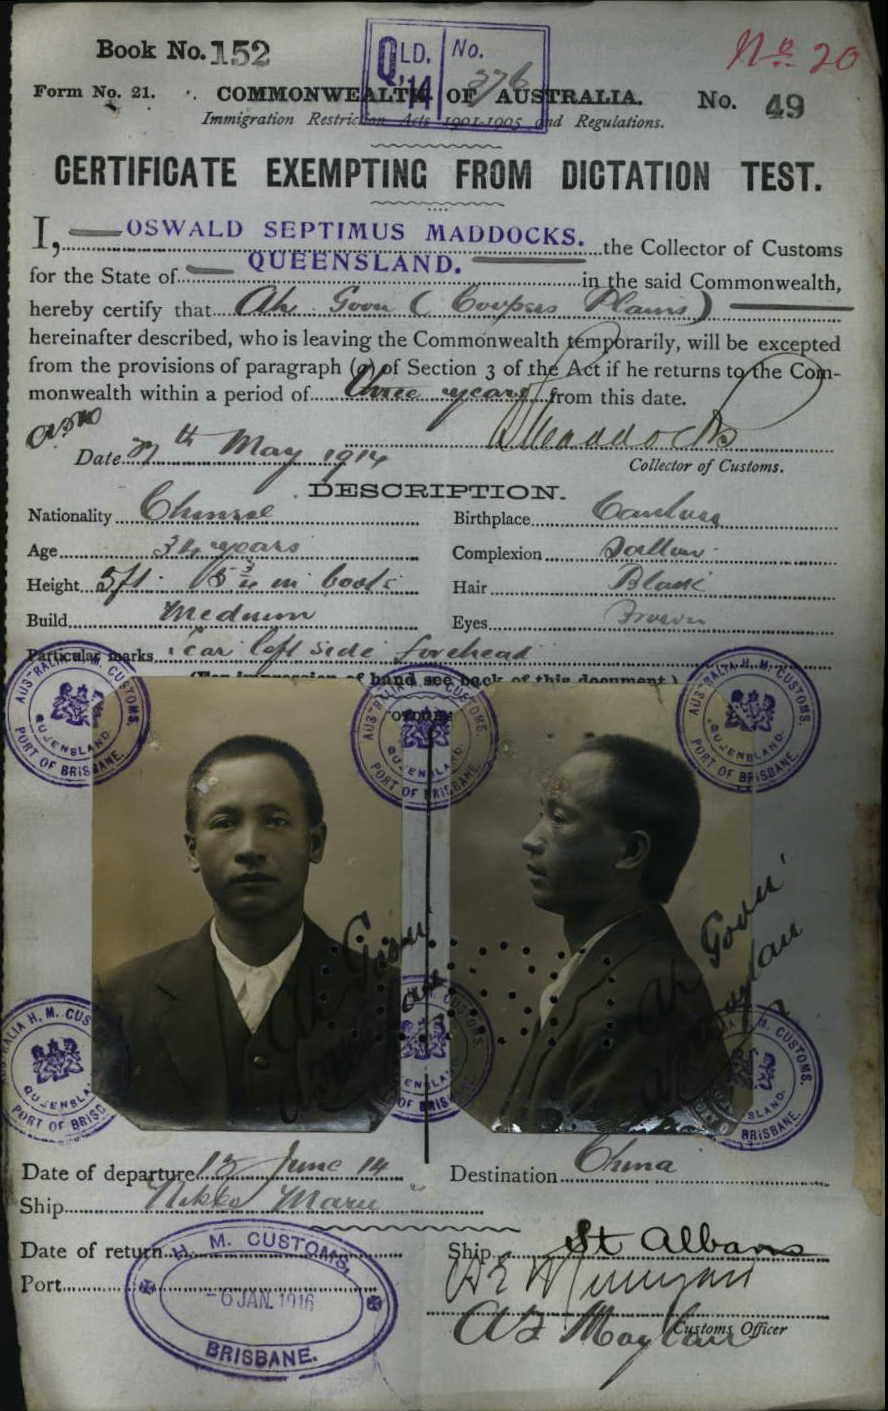 Book No. 152
QLD. No.
'14 376
Nº 20
Form No. 21. COMMONWEALTH OF AUSTRALIA. No. 49
Immigration Restriction Acts 1901-1905 and Regulations.
CERTIFICATE EXEMPTING FROM DICTATION TEST.
I, OSWALD SEPTIMUS MADDOCKS. the Collector of Customs
for the State of QUEENSLAND. in the said Commonwealth,
hereby certify that Ah Goon (Coopers Plains)
hereinafter described, who is leaving the Commonwealth temporarily, will be excepted
from the provisions of paragraph (a) of Section 3 of the Act if he returns to the Com-
monwealth within a period of three years from this date.
Maddocks
Date May 1914 Collector of Customs.
DESCRIPTION.
Nationality Chinese Birthplace Canton
Age 34 years Complexion Sallow
Height 5ft 5¾ in boots Hair Black
Build Medium Eyes Brown
Particular marks Scar left side forehead
(For impression of hand see back of this document.)
AUSTRALIA H. M. CUSTOMS. QUEENSLAND PORT OF BRISBANE.
AUSTRALIA H. M. CUSTOMS. QUEENSLAND PORT OF BRISBANE.
AUSTRALIA H. M. CUSTOMS. QUEENSLAND PORT OF BRISBANE.
Ah Goon
Ah Goon
AUSTRALIA H. M. CUSTOMS. QUEENSLAND PORT OF BRISBANE.
AUSTRALIA H. M. CUSTOMS. QUEENSLAND PORT OF BRISBANE.
AUSTRALIA H. M. CUSTOMS. QUEENSLAND PORT OF BRISBANE.
Date of departure 13 June 14 Destination China
Ship Nikko Maru
Date of return Ship St Albans
Port
H. M. CUSTOMS,
-6 JAN. 1916
BRISBANE.
Customs Officer